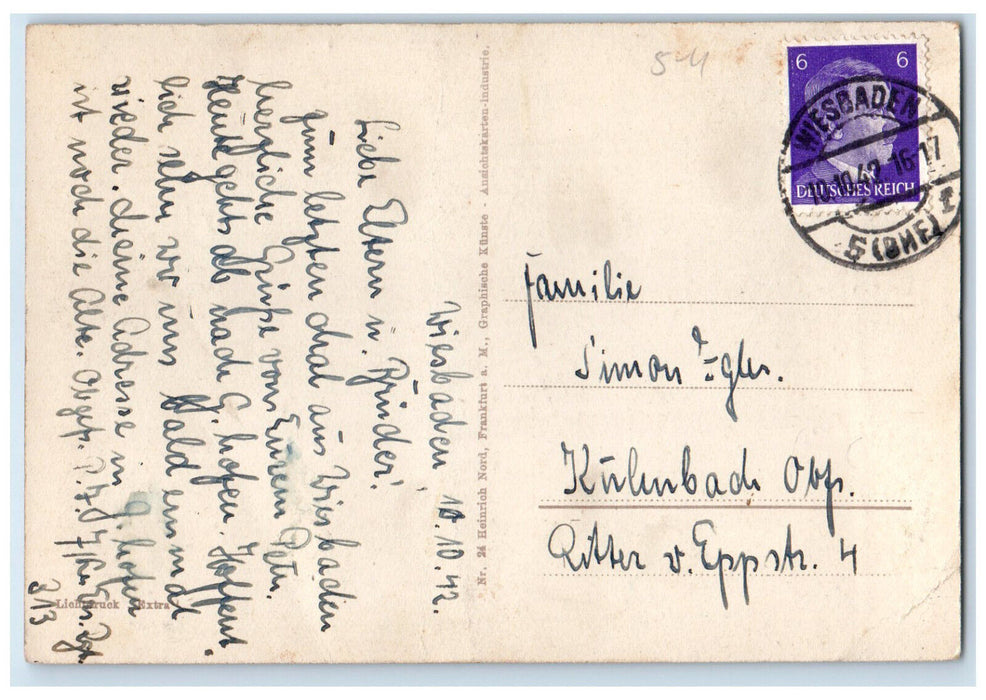 Wiesbaden 10.10.42.
Liebe Eltern u. Brüder!
Zum letzten Mal aus Wiesbaden
herzliche Grüße von Eurem Peter.
Heute gehts ab nach G. hofen. Hoffent-
lich sehn wir uns bald einmal
wieder. Meine Adresse in G. hofen
ist noch die Alte.
3/13
Nr. 24 Heinrich Nord, Frankfurt a. M., Graphische Künste - Ansichtskarten-Industrie.
Lichtdruck Extra
5-11
6 6
DEUTSCHES REICH
WIESBADEN
10.10.42. 16-17
5 (BHF) f
Familie
Simon
Kulmbach Obfr.
Ritter v. Eppstr. 4